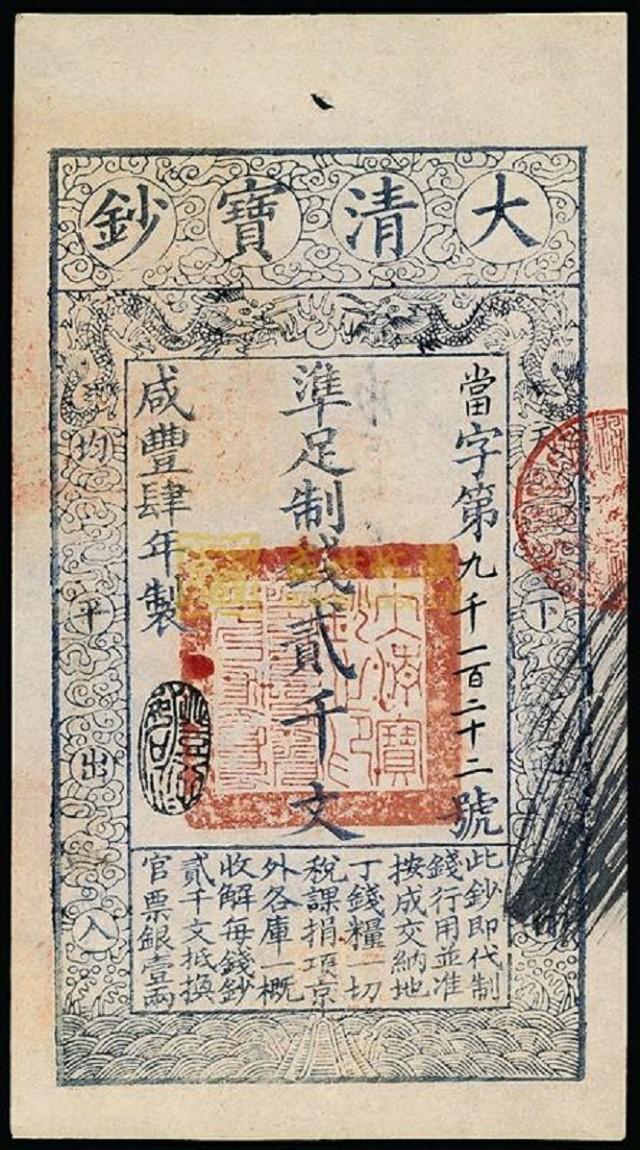 大清寶鈔
天下
當字第九千一百二十二號
準足制錢貳千文
咸豐肆年製
均平出入
此鈔即代制
錢行用並准
按成交納地
丁錢糧一切
稅課捐項京
外各庫一概
收解每錢鈔
貳千文抵換
官票銀壹兩